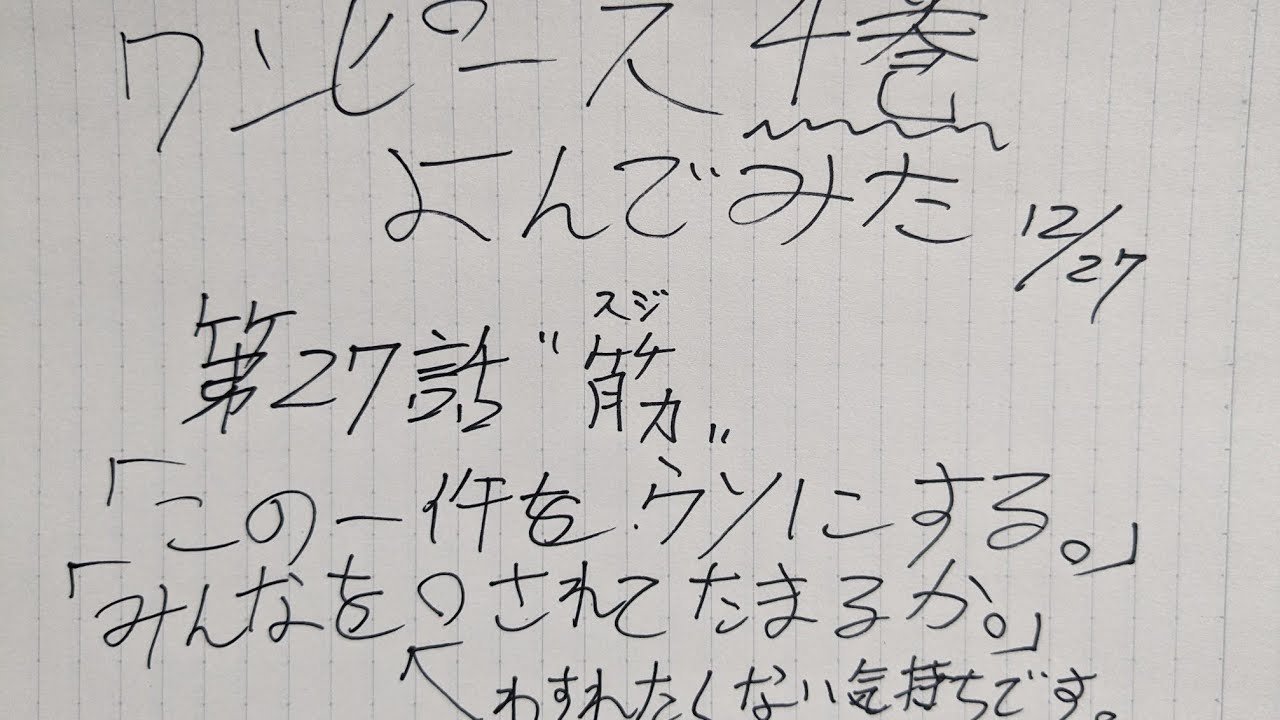 ワンピース 4巻
よんでみた 12/27
第27話 "筋" スジ
「この一件をウソにする。」
「みんなを〇されてたまるか。」
わすれたくない気持ちです。